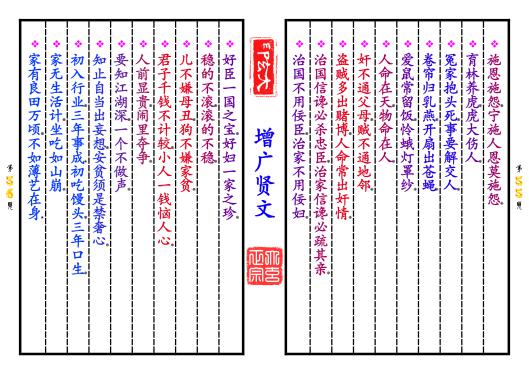 施恩施怨宁施人恩莫施怨。
育林养虎虎大伤人。
冤家抱头死事要解交人。
卷帘归乳燕开扇出苍蝇。
爱鼠常留饭怜蛾灯罩纱。
人命在天物命在人。
奸不通父母贼不通地邻。
盗贼多出赌博人命常出奸情。
治国信谗必杀忠臣治家信谗必疏其亲。
治国不用佞臣治家不用佞妇。
增广贤文
好臣一国之宝好妇一家之珍。
稳的不滚滚的不稳。
儿不嫌母丑狗不嫌家贫。
君子千钱不计较小人一钱恼人心。
人前显贵闹里夺争。
要知江湖深一个不做声。
知止自当出妄想安贫须是禁奢心。
初入行业三年事成初吃馒头三年口生。
家无生活计坐吃如山崩。
家有良田万顷不如薄艺在身。